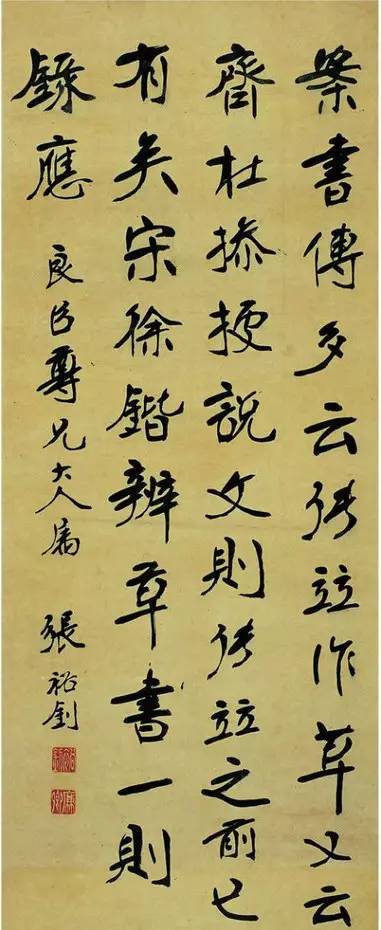 案書傳多云張竝作草又云
齊杜操據說文則張竝之前已
有矣宋徐鍇辨草書一則
錄應 良臣尊兄大人屬 張裕釗